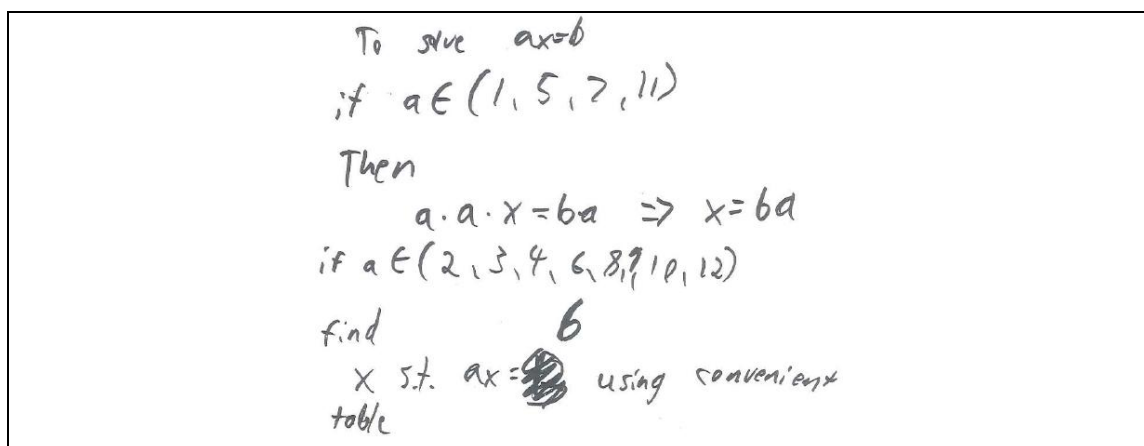 To solve ax=b
if a∈(1, 5, 7, 11)
Then
a·a·x=ba ⇒ x=ba
if a∈(2, 3, 4, 6, 8, 9, 10, 12)
find b
x s.t. ax= using convenient
table